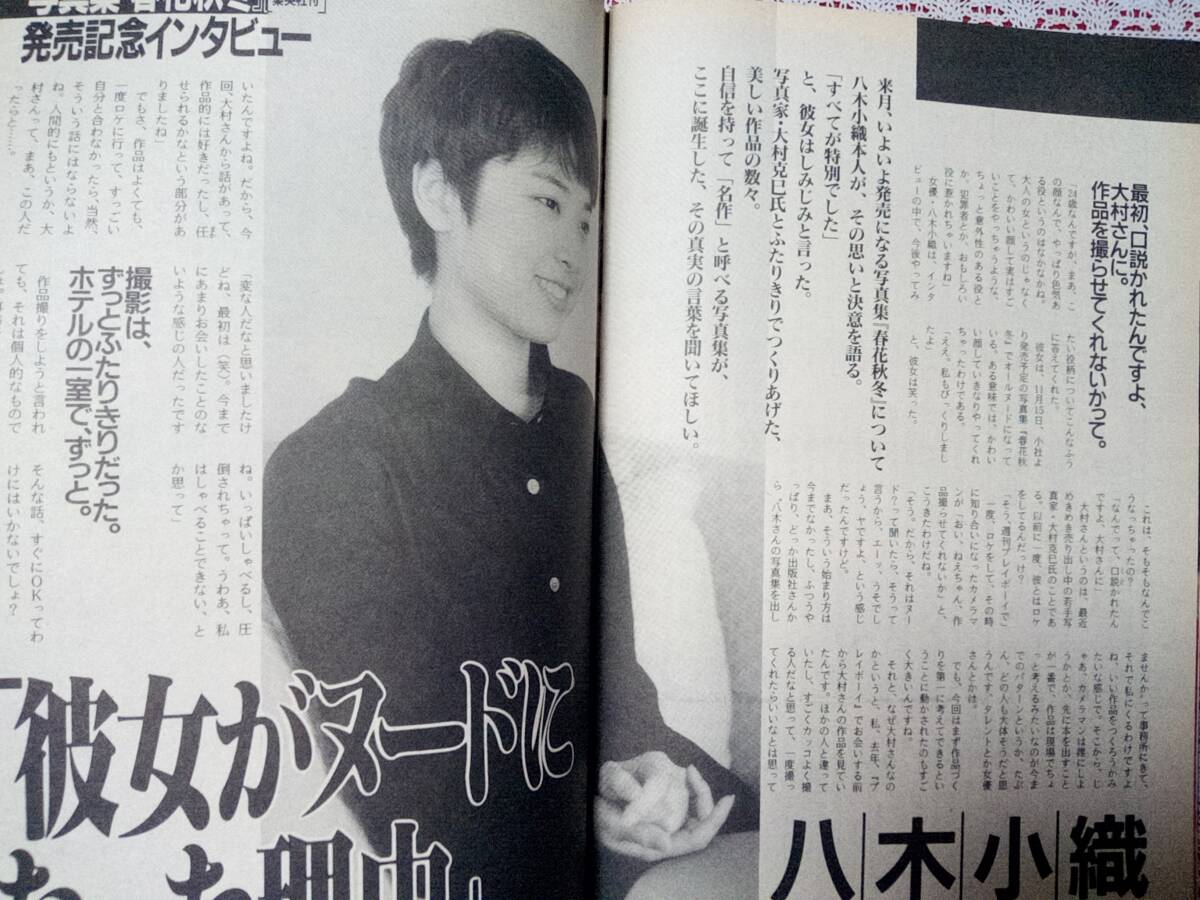 最初、口説かれたんですよ、
大村さんに。
作品を撮らせてくれないかって。
「24歳なんですが、まあ、こ
の顔なんで、やっぱり色気あ
る役というのはなかなかね。
大人の女というのじゃなく
て、かわいい顔して実はすご
いことをやっちゃうような、
ちょっと意外性のある役と
か、犯罪者とか、おもしろい
役に惹かれちゃいますね」
女優・八木小織は、インタ
ビューの中で、今後やってみ
たい役柄についてこんなふう
に答えてくれた。
彼女は、11月15日、小社よ
り発売予定の写真集『春花秋
冬』でオールヌードになって
いる。ある意味では、かわい
い顔していきなりやってくれ
ちゃったわけである。
「ええ。私もびっくりしまし
たよ」
と、彼女は笑った。
来月、いよいよ発売になる写真集『春花秋冬』について
八木小織本人が、その思いと決意を語る。
「すべてが特別でした」
と、彼女はしみじみと言った。
写真家・大村克巳氏とふたりきりでつくりあげた、
美しい作品の数々。
自信を持って「名作」と呼べる写真集が、
ここに誕生した、その真実の言葉を聞いてほしい。
これは、そもそもなんでこ
うなっちゃったの?
「なんでって、口説かれたん
ですよ、大村さんに」
大村さんというのは、最近
めきめき売り出し中の若手写
真家・大村克巳氏のことであ
る。以前に一度、彼とはロケ
をしてるんだっけ?
「そう、週刊プレイボーイで
一度、ロケをして、その時
に知り合いになったカメラマ
ンが「おい、ねえちゃん、作
品撮らせてくれないか」と、
こうきたわけだね。
「そう。だから、それはヌー
ド?って聞いたら、そうって
言うから、エーッ、うそでし
ょう、ヤですよ、という感じ
だったんですけど。
まあ、そういう始まり方は
今までなかったし、ふつうや
っぱり、どっか出版社さんか
ら、八木さんの写真集を出し
ませんかって事務所にきて、
それで私にくるわけですよ
ね、いい作品をつくろうかみ
たいな感じで。そこから、じ
ゃあ、カメラマンは誰にしよ
うかとか。先に本を出すこと
が一番で、作品は現場でちょ
っと考えるみたいなのが今ま
でのパターンというか、たぶ
ん、どの人も大体そうだと思
うんです、タレントとか女優
さんとかは。
でも、今回はまず作品づく
りを第一に考えてできるとい
うことに動かされたのもすご
く大きいんですね。
それと、なぜ大村さんなの
かというと、私、去年、『プ
レイボーイ』でお会いする前
から大村さんの作品を見てい
たんです。ほかの人と違って
いたし、すごくカッコよく撮
る人だなと思って、一度撮っ
てくれたらいいなとは思って
八木小織
写真集『春花秋冬』[集英社刊]
発売記念インタビュー
いたんですよね。だから、今
回、大村さんから話があって、
作品的には好きだったし、任
せられるかなという部分があ
りましたね」
でもさ、作品はよくても、
一度ロケに行って、すっごい
自分と合わなかったら、当然、
そういう話にはならないよ
ね。人間的にもというか、大
村さんって、まあ、この人だ
ったらと……。
「変な人だなと思いましたけ
どね、最初は(笑)。今まで
にあまりお会いしたことのな
いような感じの人だったです
ね。いっぱいしゃべるし、圧
倒されちゃって。うわあ、私
はしゃべることできない、と
か思って」
撮影は、
ずっとふたりきりだった。
ホテルの一室で、ずっと。
作品撮りをしようと言われ
ても、それは個人的なもので
そんな話、すぐにOKってわ
けにはいかないでしょ?
「彼女がヌードに
なった理由」